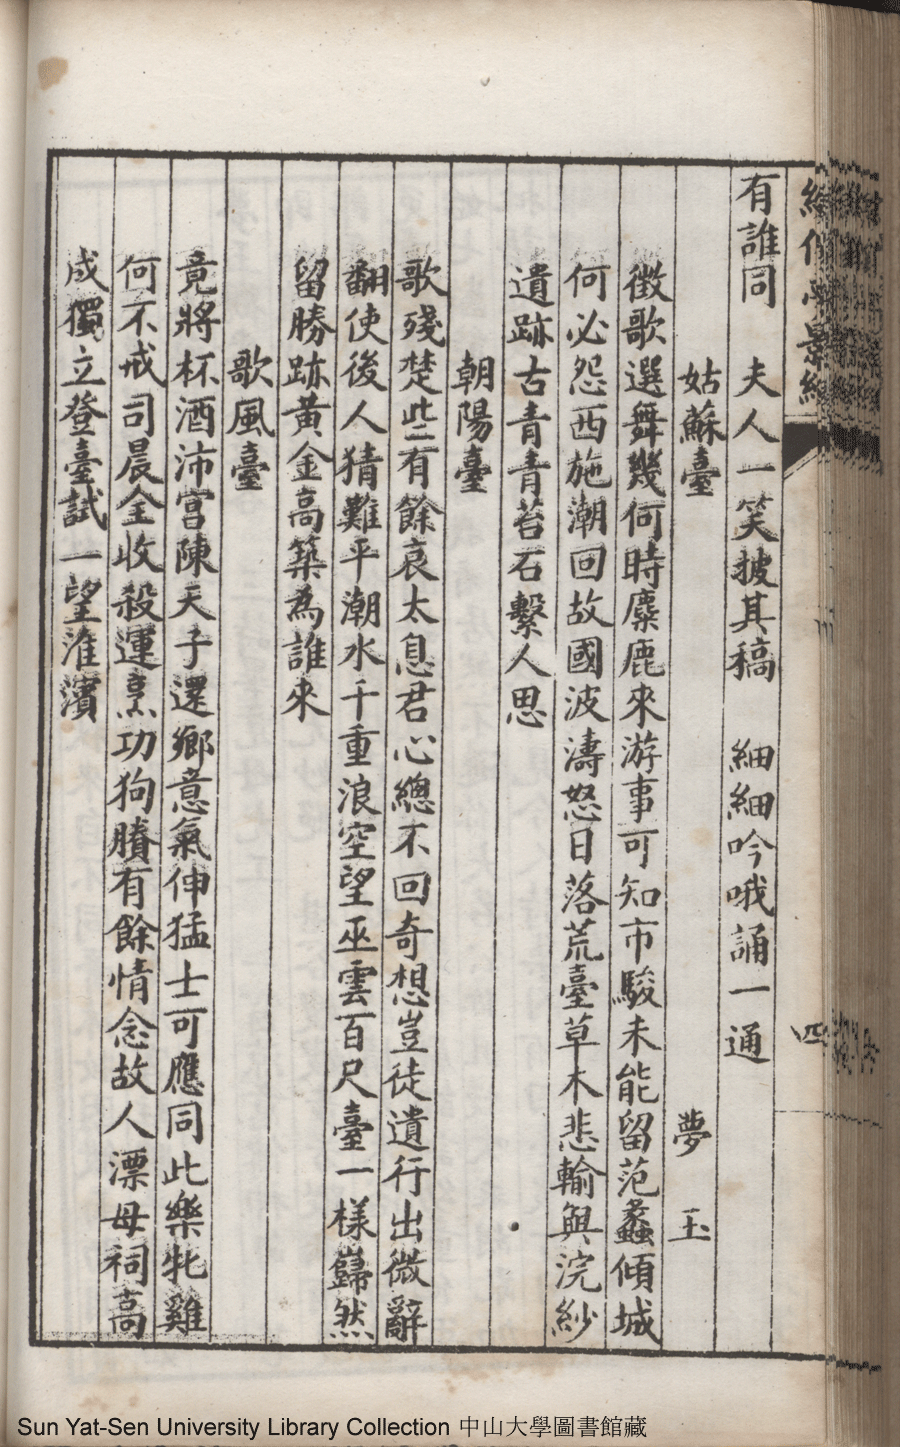 有誰同　夫人一笑披其稿　細細吟哦誦一通
姑蘇臺　夢玉
徵歌選舞幾何時麋鹿來游事可知市駿未能留范蠡傾城
何必怨西施潮回故國波濤怒日落荒臺草木悲輸與浣紗
遺跡古青青苔石繫人思
朝陽臺
歌殘楚些有餘哀太息君心總不回奇想豈徒遺行出微辭
翻使後人猜難平潮水千重浪空望巫雲百尺臺一樣巋然
留勝跡黃金高築為誰來
歌風臺
竟將杯酒沛宮陳天子還鄉意氣伸猛士可應同此樂牝雞
何不戒司晨金收殺運烹功狗賸有餘情念故人漂母祠高
成獨立登臺試一望淮濱
四
Sun Yat-Sen University Library Collection 中山大學圖書館藏